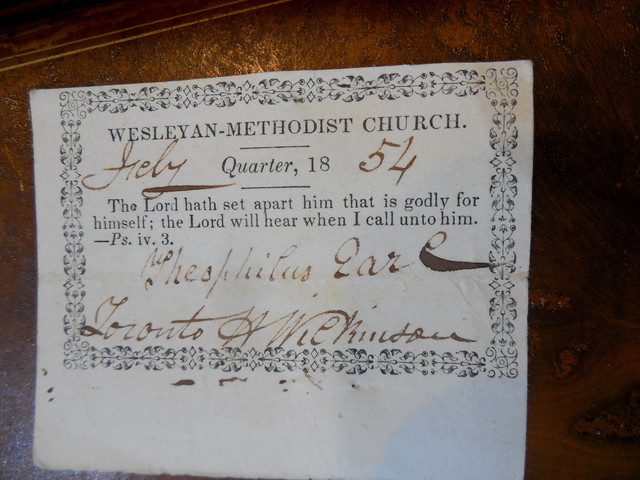 WESLEYAN-METHODIST CHURCH.
Feby Quarter, 1854
The Lord hath set apart him that is godly for
himself; the Lord will hear when I call unto him.
—Ps. iv. 3.
Theophilus Earl
Toronto H Wilkinson